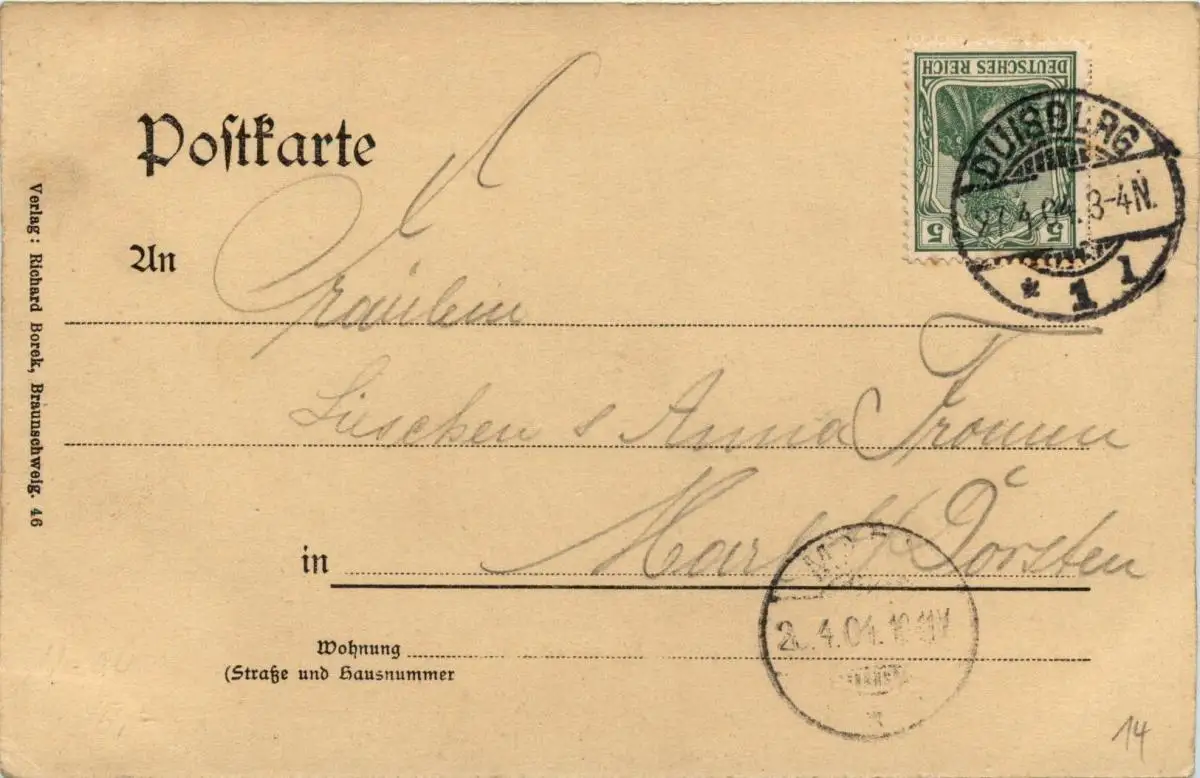 Postkarte
DEUTSCHES REICH
5 5
DUISBURG
27.4.04. 3-4N.
* 1 1
An
Fräulein
Lieschen & Anna
in
Marl Dorsten
MARL
4.04.
Wohnung
(Straße und Hausnummer
Verlag: Richard Borek, Braunschweig. 46
14